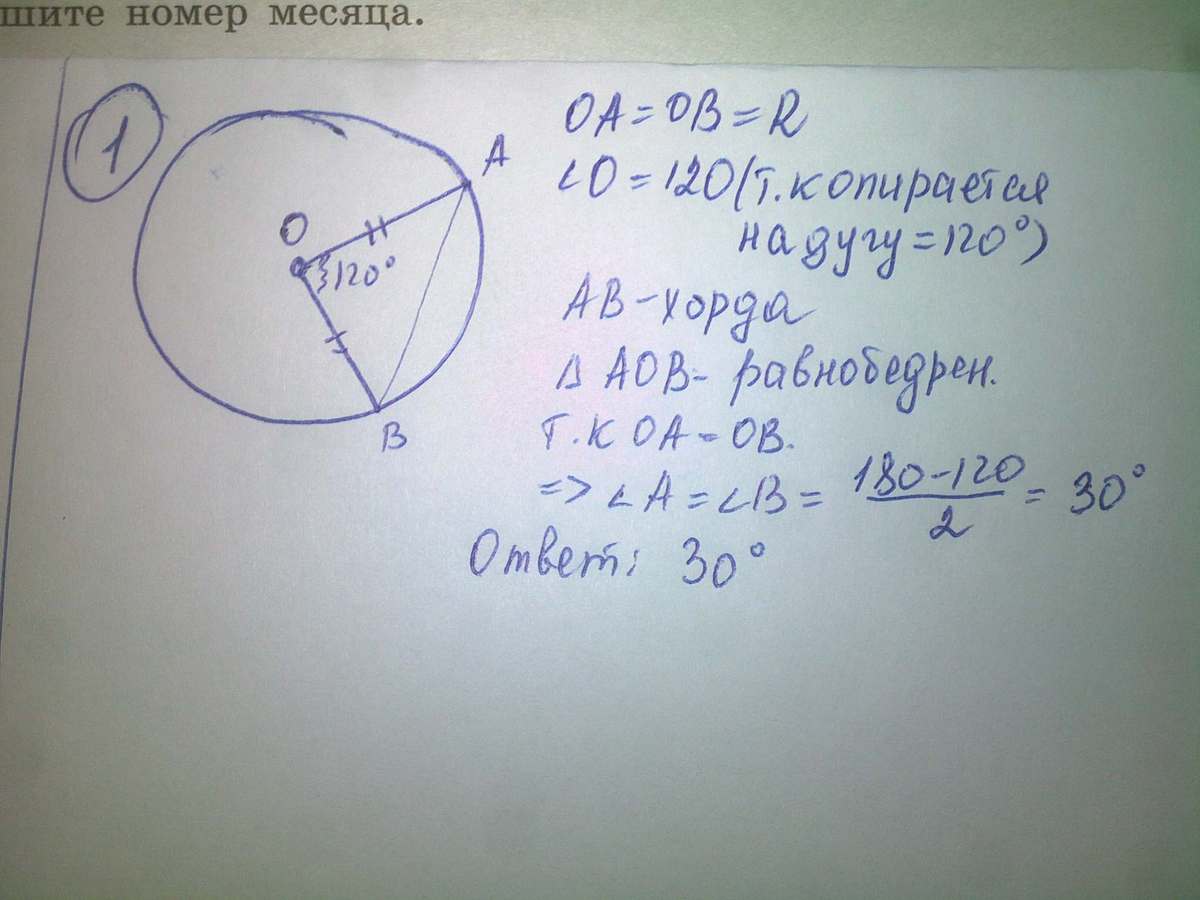 шите номер месяца.
1
A
O
120°
B
OA = OB = R
∠O = 120 (т.к опирается
на дугу = 120°)
AB - хорда
Δ AOB - равнобедрен.
т.к OA = OB.
=> ∠A = ∠B = (180-120)/2 = 30°
Ответ: 30°